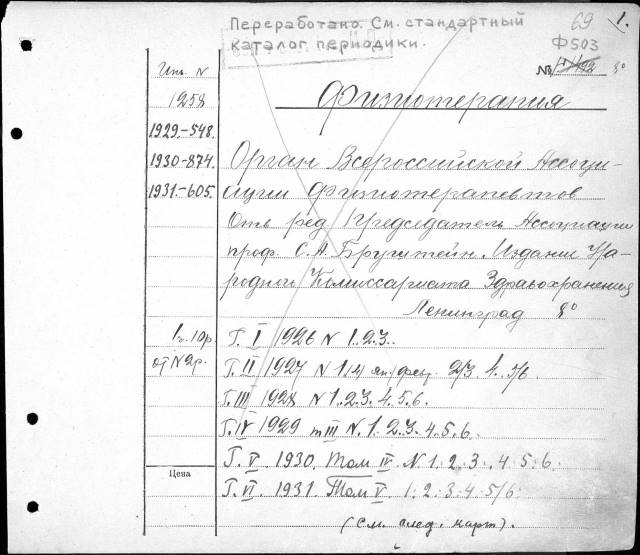 Переработано. См. стандартный
каталог периодики.
69
1.
Ф503
№
8°
Инв. N
1258
1929.-548.
1930-874.
1931.-605.
Физиотерапия
Орган Всероссийской Ассоци-
ации Физиотерапевтов
Отв ред Председатель Ассоциации
проф. С. А. Бруштейн. Издание На-
родного Комиссариата Здравохранения
Ленинград 8°
от №2р.
Г. I 1926 N 1.2.3.
Г. II 1927 N 1(4) 2/3. 4. 5/6.
Г. III 1928 N 1.2.3.4.5.6.
Г. IV 1929 т III N. 1.2.3.4.5.6.
Г. V. 1930. Том IV. N. 1.2.3.4.5.6.
Г. VI. 1931. Том V. 1.2.3.4.5/6.
Цена
(См. след. карт).